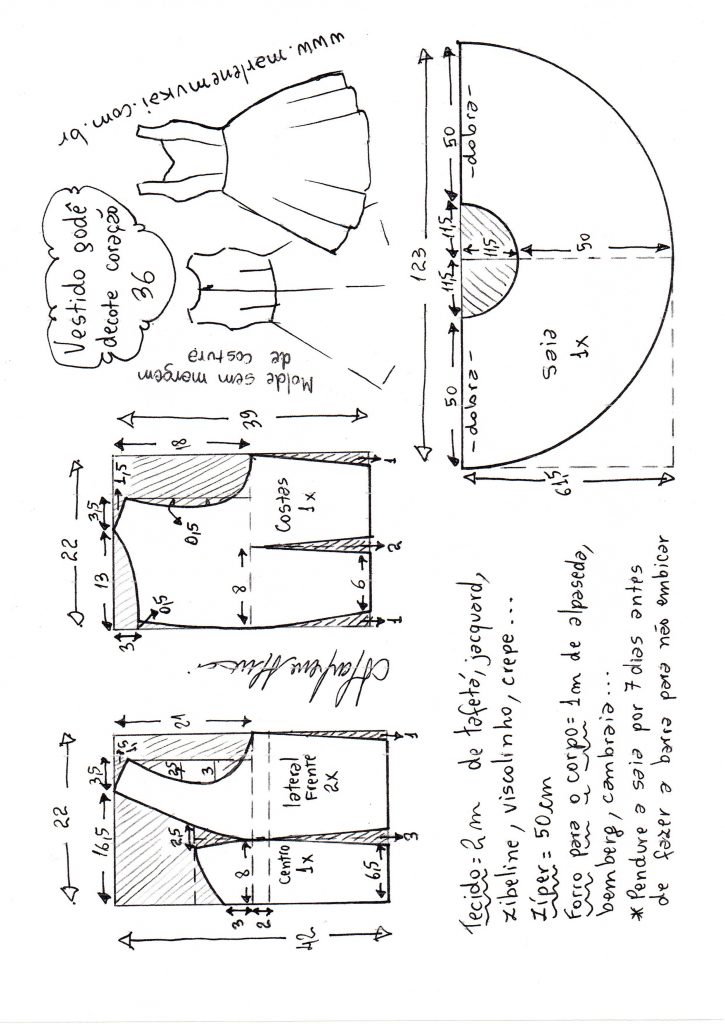 www.marlenemukai.com.br
Vestido godê
decote coração
36
Molde sem margem
de costura
22
16,5
3,5
1,5
21
2,5
3
2,5
8
3
2
Centro
1x
lateral
Frente
2x
6,5
3
1
42
22
13
3,5
1,5
18
3
0,5
0,5
8
Costas
1x
6
1
2
1
39
Marlene Mukai
123
50
11,5
11,5
50
-dobra-
-dobra-
11,5
50
saia
1x
61,5
Tecido = 2m de tafetá, jacquard,
zibeline, viscolinho, crepe...
Zíper = 50cm
Forro para o corpo = 1m de alpaseda,
bemberg, cambraia...
* Pendure a saia por 7 dias antes
de fazer a barra para não embicar